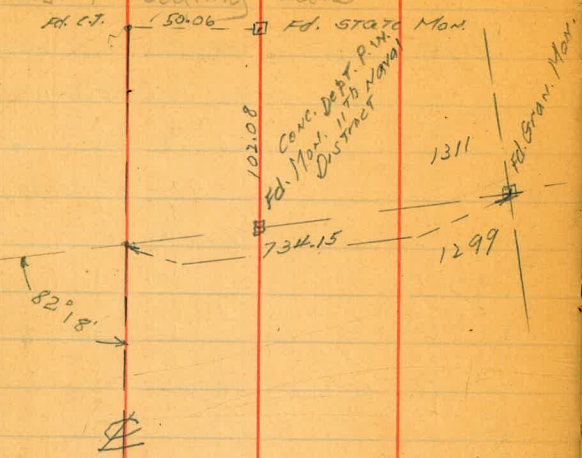 Fd. C.T. 50.06 Fd. State Mon.
102.08
Conc. Dept. P.W.
Fd. Mon. 11th Naval
District
Fd. Gran. Mon.
1311
734.15
1299
82°18'
℄